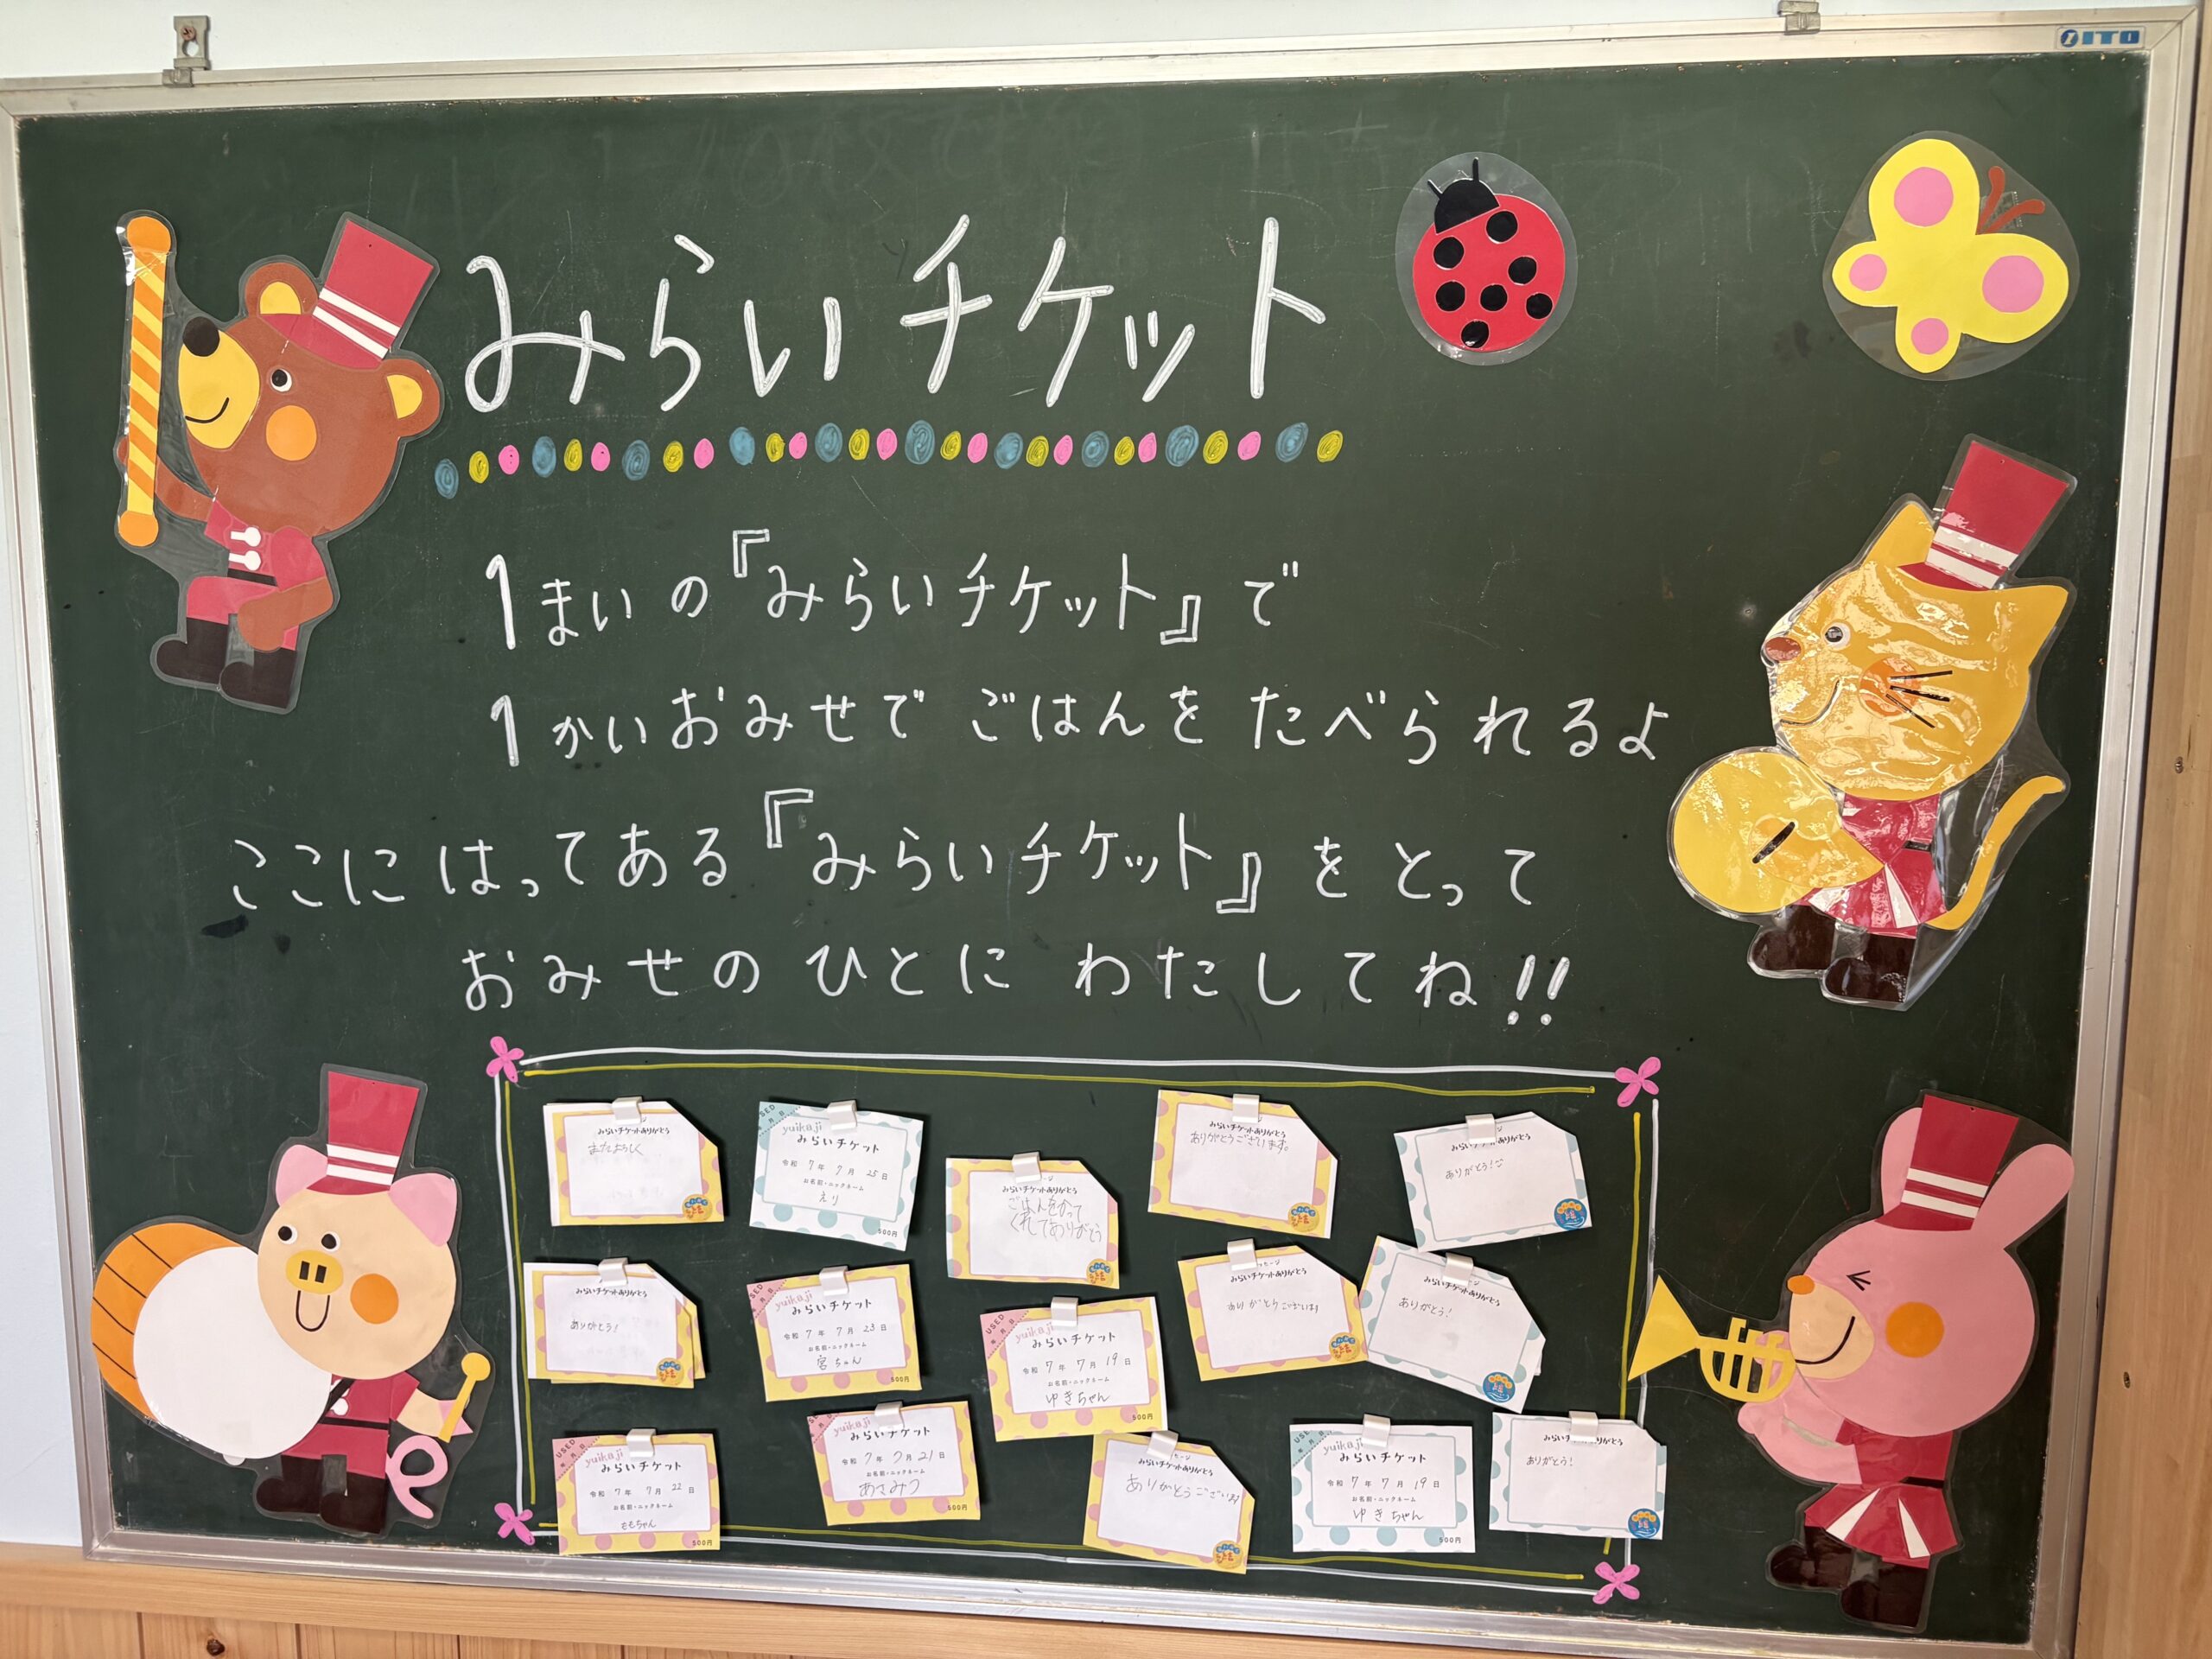 ITO
みらいチケット
1まいの『みらいチケット』で
1かいおみせでごはんをたべられるよ
ここにはってある『みらいチケット』をとって
おみせのひとにわたしてね!!
みらいチケットありがとう
またよろしく
USED
yuikaji
みらいチケット
令和 7年 7月 25日
お名前・ニックネーム
えり
500円
みらいチケットありがとう
ごはんをかって
くれてありがとう
みらいチケットありがとう
ありがとうございます。
みらいチケットありがとう
ありがとう!
みらいチケットありがとう
ありがとう!
USED
yuikaji
みらいチケット
令和 7年 7月 23日
お名前・ニックネーム
宮ちゃん
500円
USED
yuikaji
みらいチケット
令和 7年 7月 19日
お名前・ニックネーム
ゆきちゃん
500円
みらいチケットありがとう
ありがとうございます
みらいチケットありがとう
ありがとう!
USED
yuikaji
みらいチケット
令和 7年 7月 22日
お名前・ニックネーム
ももちゃん
500円
yuikaji
みらいチケット
令和 7年 7月 21日
お名前・ニックネーム
あさみつ
500円
みらいチケットありがとう
ありがとうございます
yuikaji
みらいチケット
令和 7年 7月 19日
お名前・ニックネーム
ゆきちゃん
500円
ありがとう!